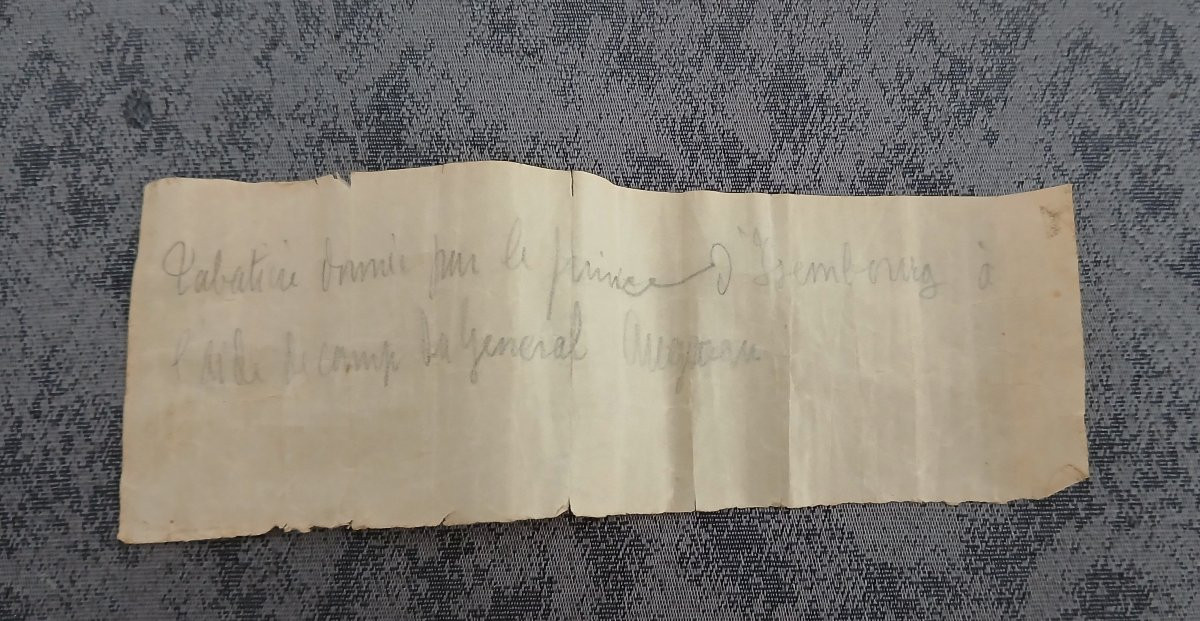 Tabatière donnée par le prince d'Isembourg à
l'aide de camp du Général Augereau